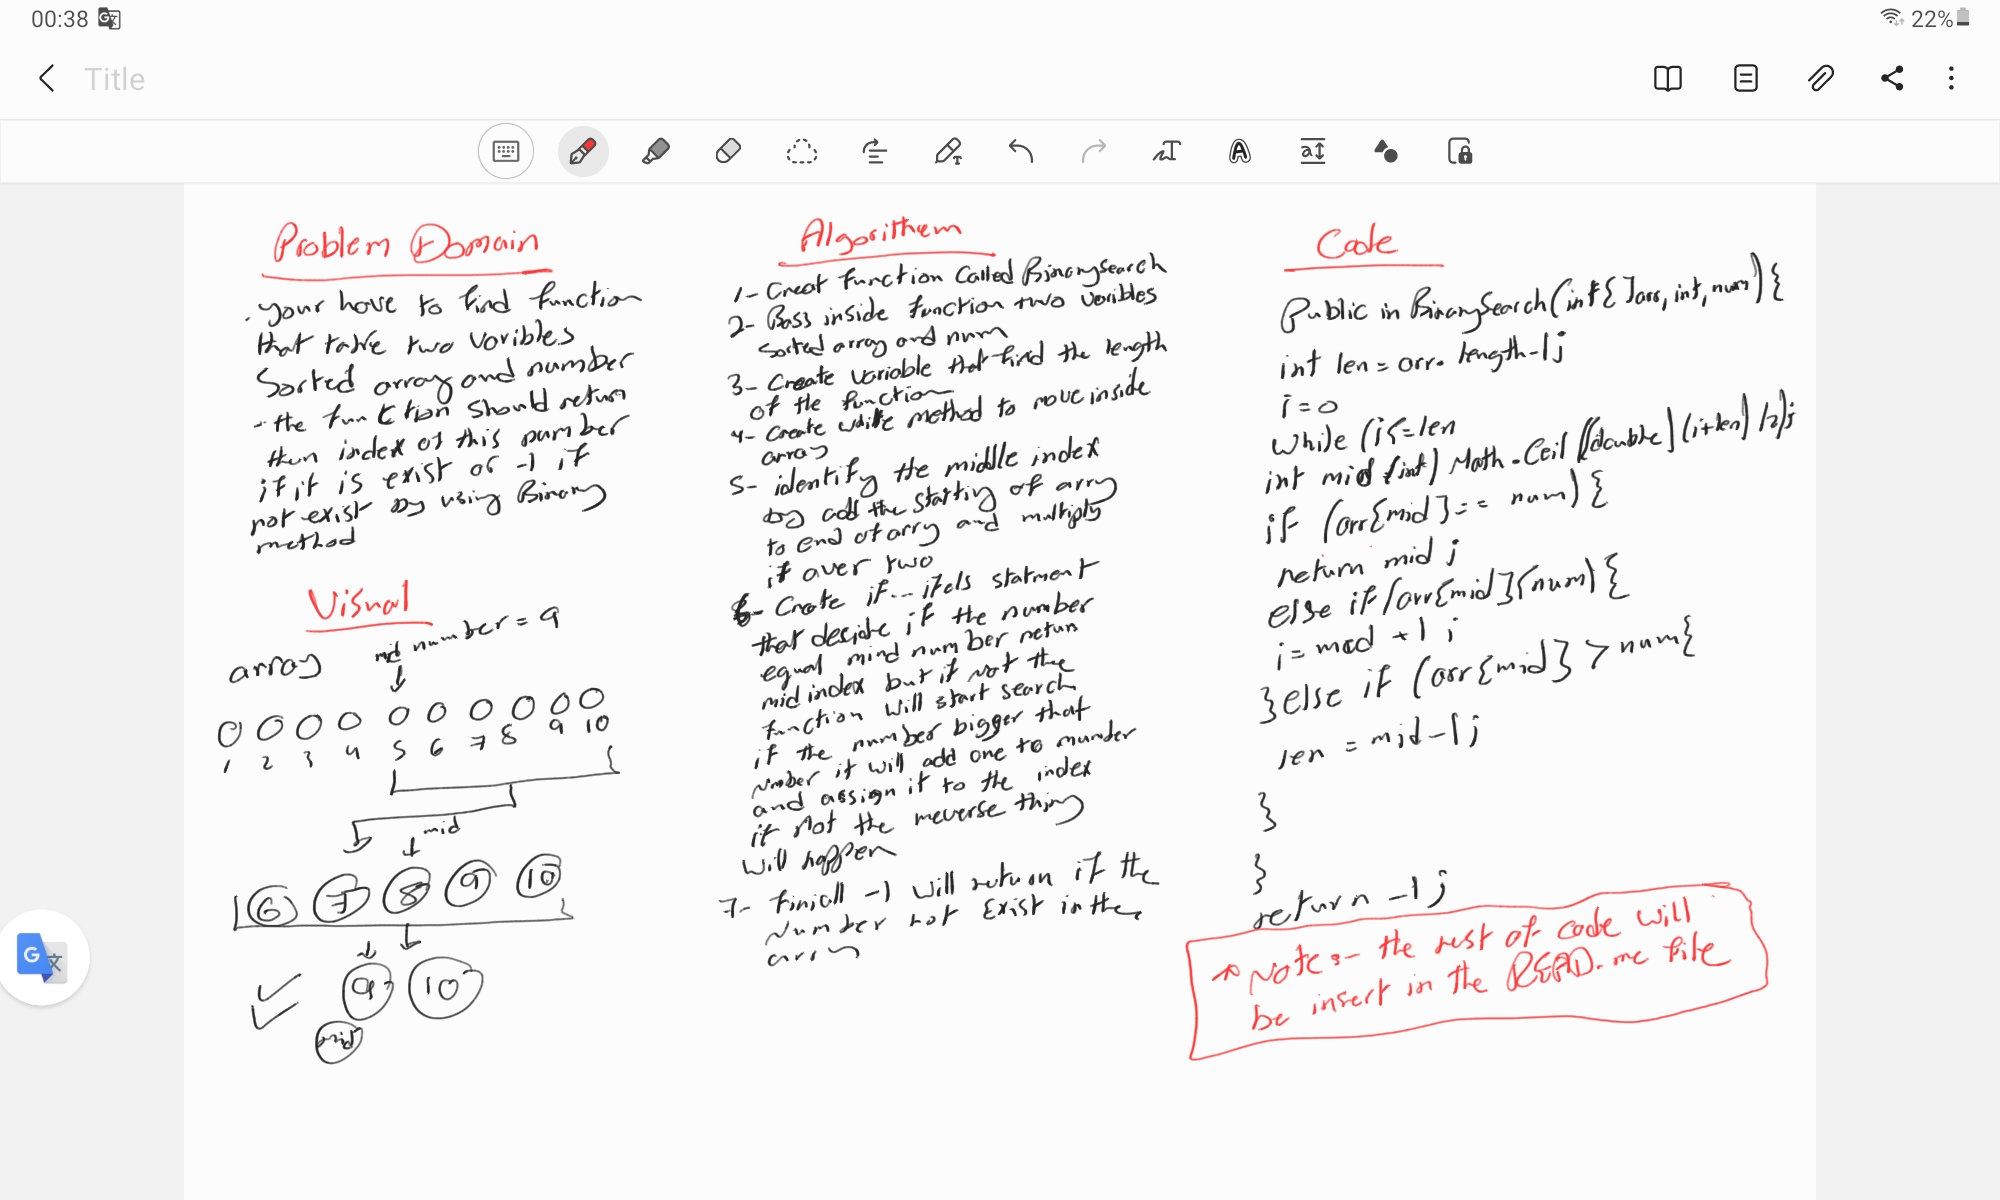 00:38
22%
Title
Problem Domain
. your have to find function
that take two varibles
Sorted array and number
- the function should return
then index of this number
if it is exist or -1 if
not exist by using Binary
method
Visual
array mid number = 9
0 0 0 0 0 0 0 0 0 0
1 2 3 4 5 6 7 8 9 10
mid
6 7 8 9 10
9 10
mid
Algorithem
1- Creat function Called BinarySearch
2- Bass inside function two varibles
Sorted array and num
3- Create variable that find the length
of the function
4- Create while method to move inside
array
5- identify the middle index
by add the starting of arry
to end of arry and multiply
it over two
6- Create if... ifels statment
that decide if the number
equal mind number retun
mid index but if not the
function will start search
if the number bigger that
number it will add one to munder
and assign it to the index
if not the reverse thing
will happen
7- finiall -1 will return if the
Number not Exist in the
array
Code
Public in BinarySearch(int{]arr, int, num){
int len = arr. length-1;
i=0
while (i<=len
int mid (int) Math.Ceil ((double)(i+len) /2);
if (arr{mid]== num) {
return mid ;
else if (arr{mid]{num) {
i= mod +1 ;
}else if (arr{mid} > num{
len = mid-1;
}
}
return -1;
Note:- the rest of code will
be insert in the READ.me file